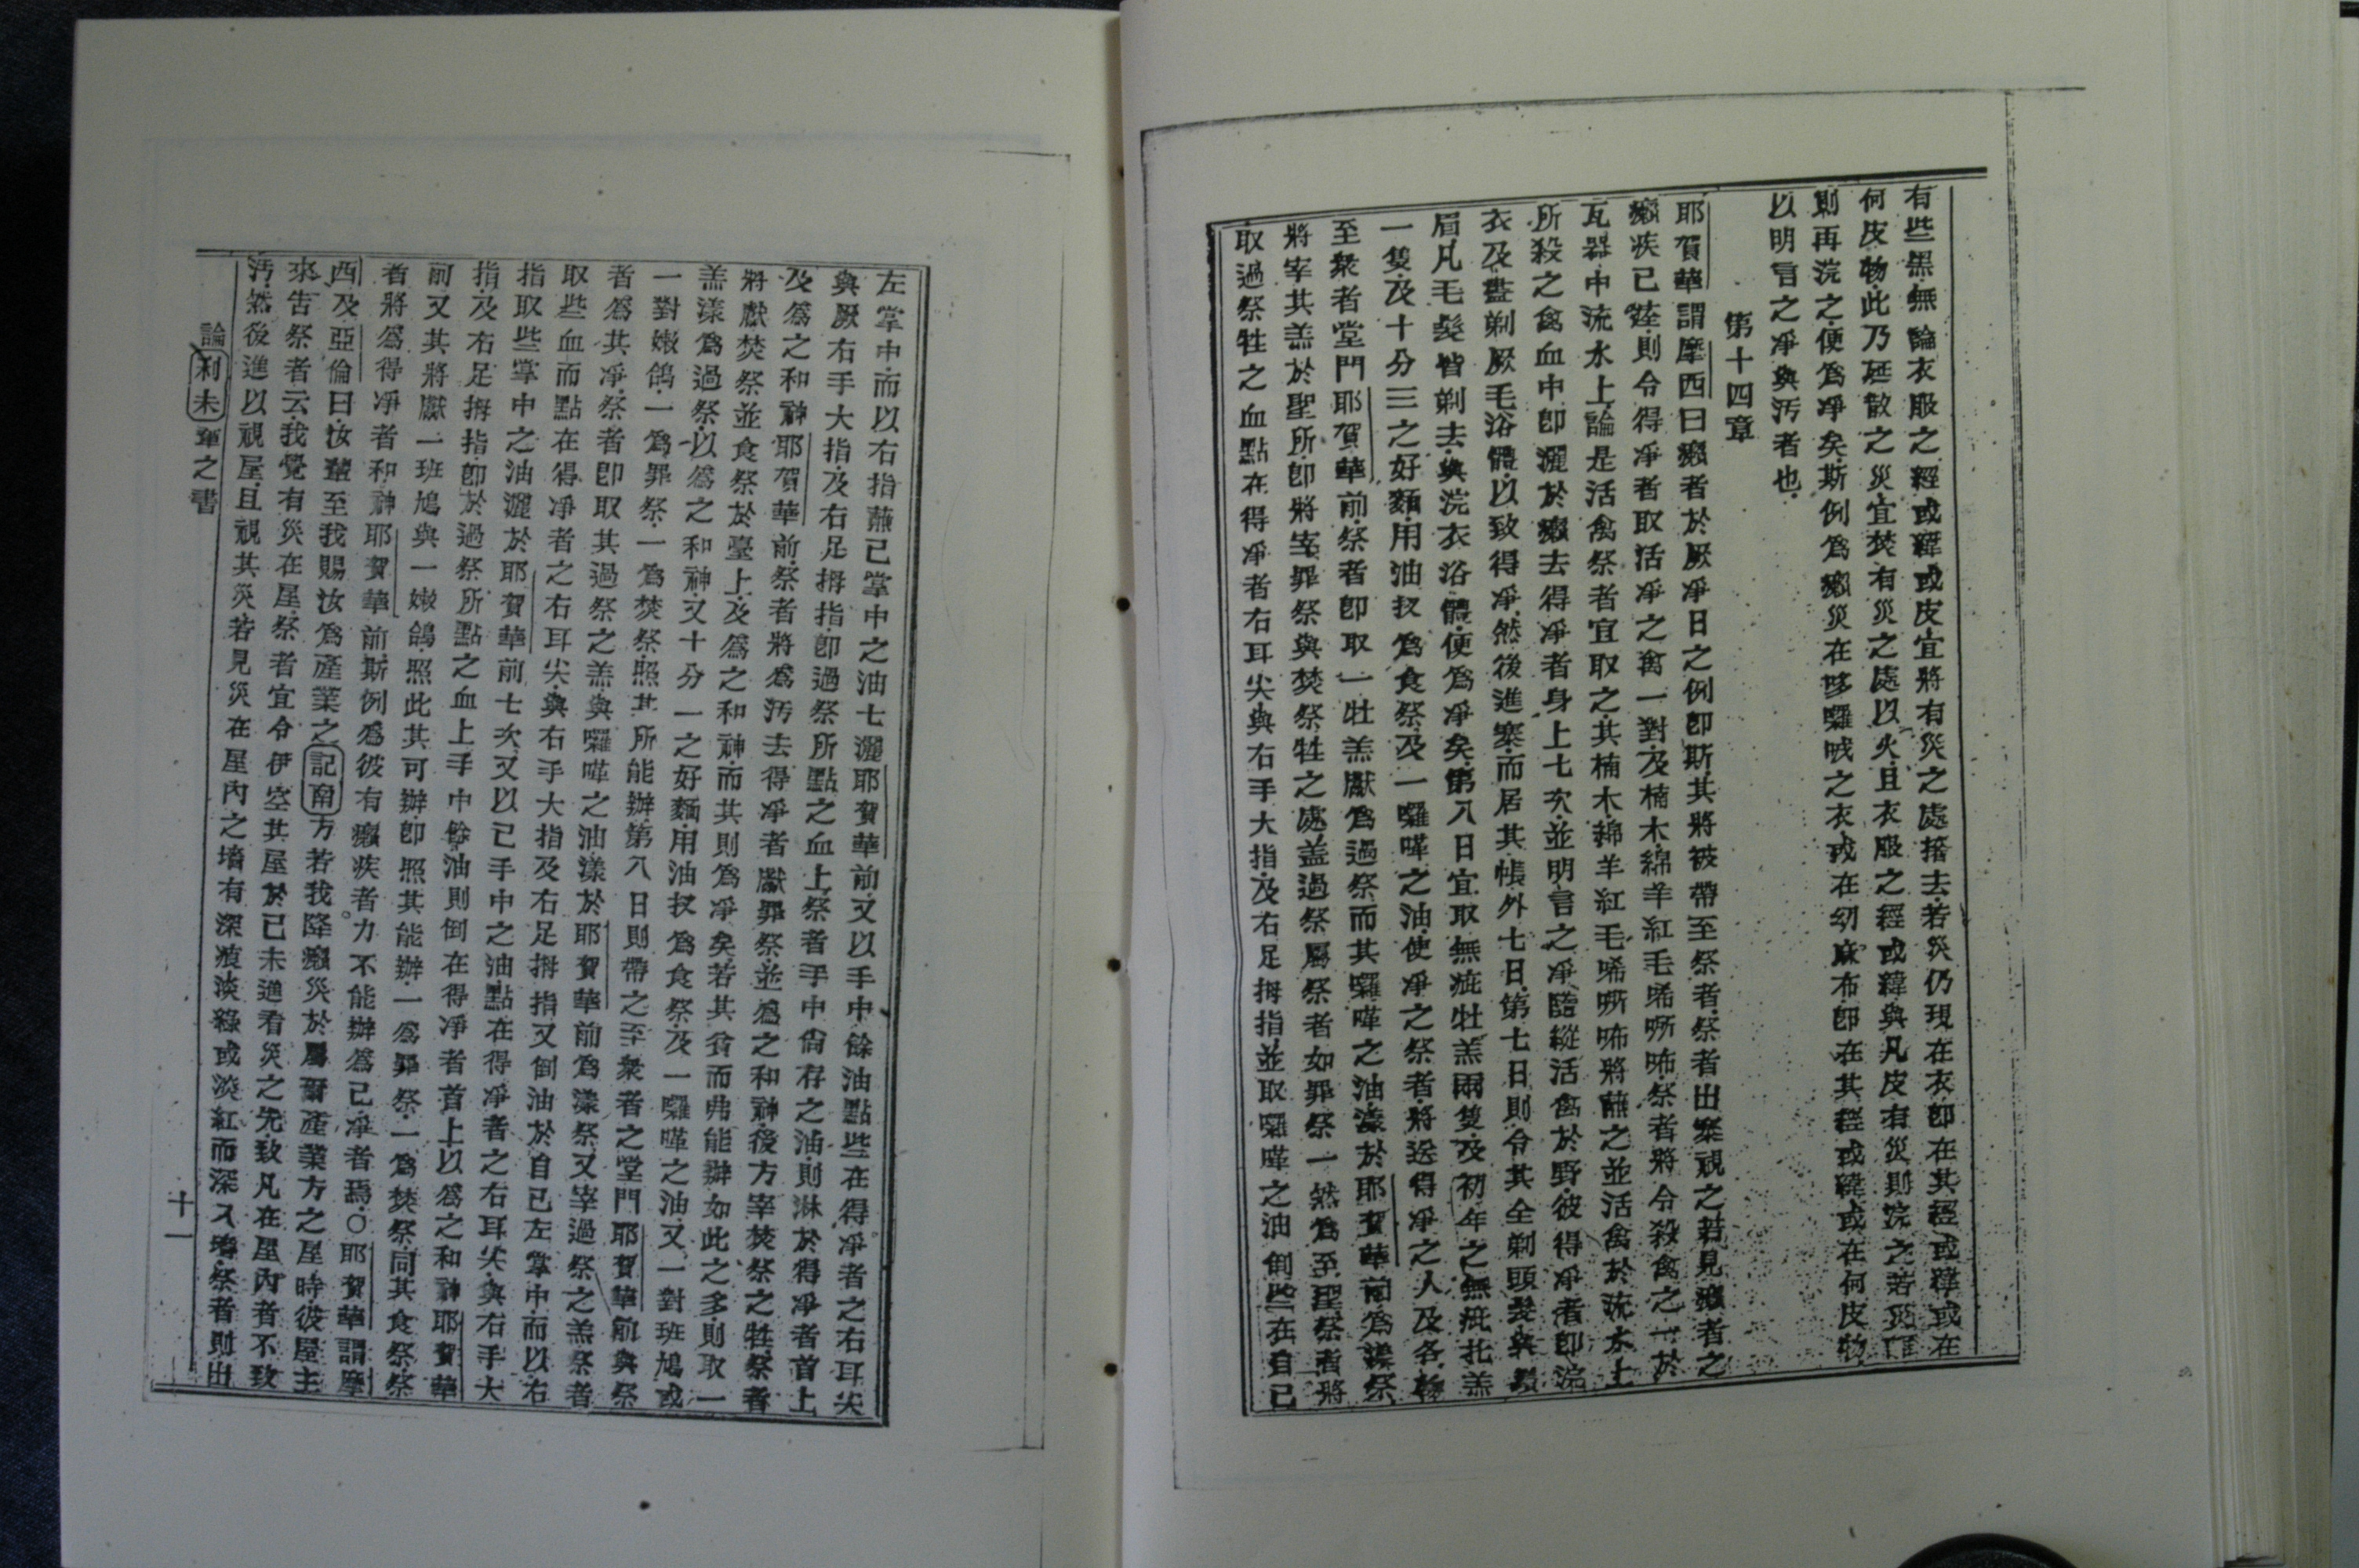 有些黑無論衣服之經或緯或皮宜將有災之處撦去若災仍現在衣卽在其經或緯或在
何皮物此乃延散之災宜焚有災之處以火且衣服之經或緯與凡皮有災則浣之若災離
則再浣之便爲凈矣斯例爲癩災在哆囉絨之衣或在幼麻布卽在其經或緯或在何皮物
以明言之凈與汚者也
第十四章
耶賀華謂摩西曰癩者於厥凈日之例卽斯其將被帶至祭者祭者出寨視之若見癩者之
癩疾已痊則令得凈者取活凈之禽一對及楠木綿羊紅毛唏㘔咘祭者將令殺禽之一於
瓦器中流水上論是活禽祭者宜取之其楠木綿羊紅毛唏㘔咘將蘸之並活禽於流水上
所殺之禽血中卽灑於癩去得凈者身上七次並明言之凈旣縱活禽於野彼得凈者卽浣
衣及盡剃厥毛浴體以致得凈然後進寨而居其帳外七日第七日則令其全剃頭髮與鬚
眉凡毛髮皆剃去與浣衣浴體便爲凈矣第八日宜取無疵牡羔兩隻及初年之無疵牝羔
一隻及十分三之好麵用油拌爲食祭及一囉嘩之油使凈之祭者將送得凈之人及各物
至衆者堂門耶賀華前祭者卽取一牡羔獻爲過祭而其囉嘩之油漾於耶賀華前爲漾祭
將宰其羔於聖所卽將宰罪祭與焚祭牲之處蓋過祭屬祭者如罪祭一然爲至聖祭者將
取過祭牲之血點在得凈者右耳尖與右手大指及右足拇指並取囉嘩之油倒些在自己
左掌中而以右指蘸己掌中之油七灑耶賀華前又以手中餘油點些在得凈者之右耳尖
與厥右手大指及右足拇指卽過祭所點之血上祭者手中尙存之油則淋於得凈者首上
及爲之和神耶賀華前祭者將爲汚去得凈者獻罪祭並爲之和神後方宰焚祭之牲祭者
將獻焚祭並食祭於臺上及爲之和神而其則爲凈矣若其貧而弗能辦如此之多則取一
羔漾爲過祭以爲之和神又十分一之好麵用油拌爲食祭及一囉嘩之油又一對班鳩或
一對嫩鴿一爲罪祭一爲焚祭照其所能辦第八日則帶之至衆者之堂門耶賀華前與祭
者爲其凈祭者卽取其過祭之羔與囉嘩之油漾於耶賀華前爲漾祭又宰過祭之羔祭者
取些血而點在得凈者之右耳尖與右手大指及右足拇指又倒油於自己左掌中而以右
指取些掌中之油灑於耶賀華前七次又以己手中之油點在得凈者之右耳尖與右手大
指及右足拇指卽於過祭所點之血上手中餘油則倒在得凈者首上以爲之和神耶賀華
前又其將獻一班鳩與一嫩鴿照此其可辦卽照其能辦一爲罪祭一爲焚祭同其食祭祭
者將爲得凈者和神耶賀華前斯例爲彼有癩疾者力不能辦爲己凈者焉○耶賀華謂摩
西及亞倫曰汝輩至我賜汝爲產業之記南方若我降癩災於屬爾產業方之屋時彼屋主
來告祭者云我覺有災在屋祭者宜令伊空其屋於己未進看災之先致凡在屋內者不致
汚然後進以視屋且視其災若見災在屋內之墻有深痕淡綠或淡紅而深入墻祭者則出
論利未輩之書 十一